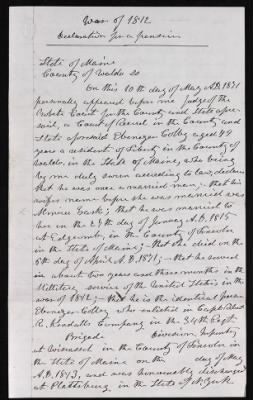 War of 1812
Declaration for a pension
State of Maine
County of Waldo ss
On this 10th day of May A.D. 1871
personally appeared before me Judge of the
Probate Court for the County and State afore-
said, a Court of Record in the County and
State aforesaid Ebenezer Colby aged 79
years a resident of Liberty in the County of
Waldo, in the State of Maine, who being
by me duly sworn according to law, declares
that he was once a married man; that his
wife's name before she was married was
that he was married to
her on the day of January A.D. 1815
at Edgecomb, in the County of Lincoln
in the State of Maine; that she died on the
6th day of April A.D. 1871; that he served
in about two years and three months in the
Military service of the United States in the
war of 1812; that he is the identical
Ebenezer Colby who enlisted in Capt.
R. Kendalls Company in the 34th Regt
Brigade Division Infantry
at Wiscasset in the County of Lincoln in
the State of Maine on the day of May
A.D. 1813, and was honorably discharged
at Plattsburg in the State of N. York